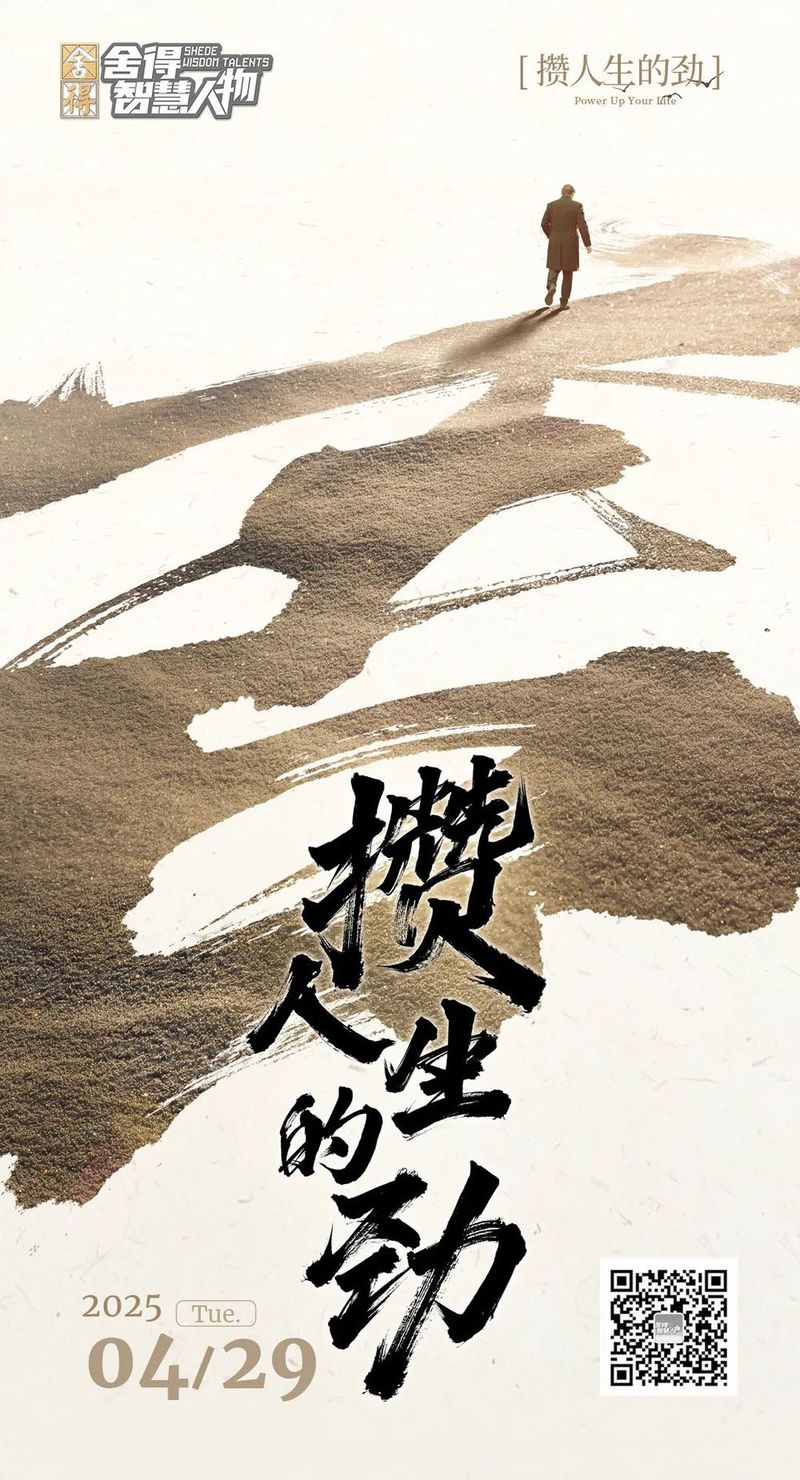 舍得
舍得
智慧人物
SHEDE
WISDOM TALENTS
[ 攒人生的劲 ]
Power Up Your Life
攒
人生
的
劲
2025 Tue.
04/29
舍得
智慧人物